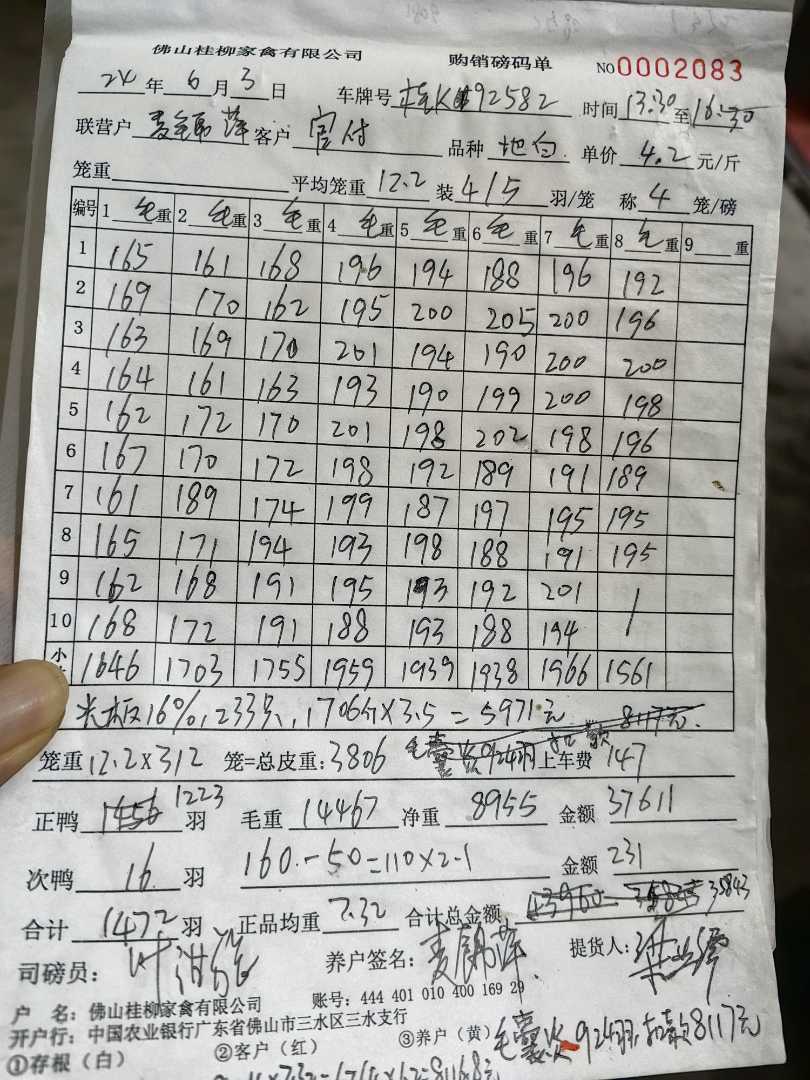 佛山桂柳家禽有限公司 购销磅码单 NO0002083
24年6月3日 车牌号 桂K92582 时间 13:30至16:30
联营户 麦锦萍 客户 官付 品种 地白 单价 4.2 元/斤
笼重 平均笼重 12.2 装 4/5 羽/笼 称 4 笼/磅
编号 1 毛重 2 毛重 3 毛重 4 毛重 5 毛重 6 毛重 7 毛重 8 毛重 9 重
1 165 161 168 196 194 188 196 192
2 169 170 162 195 200 205 200 196
3 163 169 170 201 194 190 200 200
4 164 161 163 193 190 199 200 198
5 162 172 170 201 198 202 198 196
6 167 170 172 198 192 189 191 189
7 161 189 174 199 187 197 195 195
8 165 171 194 193 198 188 191 195
9 162 168 191 195 193 192 201 /
10 168 172 191 188 193 188 194 /
小 1646 1703 1755 1959 1939 1938 1966 1561
16%, 233只, 1706斤×3.5=5971元 8117元
笼重 12.2×312 笼=总皮重: 3806 924羽 扣款 上车费 147
正鸭 1456 1223 羽 毛重 14467 净重 8955 金额 37611
次鸭 16 羽 160-50=110×2.1 金额 231
合计 1472 羽 正品均重 7.32 合计总金额 35843
司磅员: 养户签名: 麦锦萍 提货人:
户 名: 佛山桂柳家禽有限公司 账号: 444 401 010 400 169 29
开户行: 中国农业银行广东省佛山市三水区三水支行
①存根(白) ②客户(红) ③养户(黄) 924羽, 扣款8117元